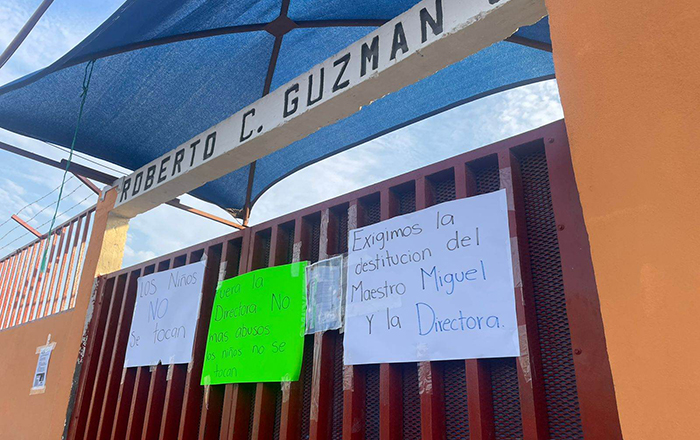 ROBERTO C. GUZMAN
Los Niños
NO
se tocan
Fuera la
Directora. NO
mas abusos
Los niños no se
Tocan
Exigimos la
destitucion del
Maestro Miguel
Y la Directora.